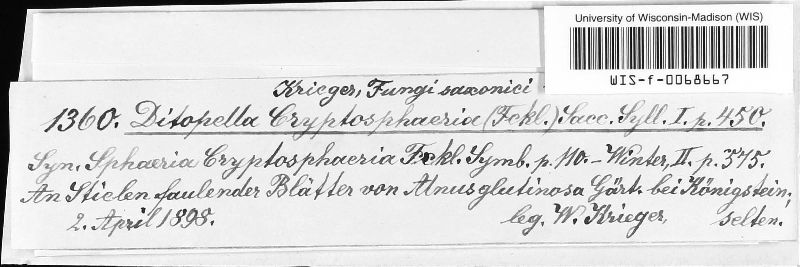 University of Wisconsin-Madison (WIS)
WIS-f-0068667
Krieger, Fungi saxonici
1360. Ditopella Cryptosphaeria (Fckl.) Sacc. Syll. I. p. 450.
Syn. Sphaeria Cryptosphaeria Fckl. Symb. p. 110. - Winter, II. p. 375.
An Stielen faulender Blätter von Alnus glutinosa Gärt. bei Königstein;
2. April 1898. leg. W. Krieger, selten.